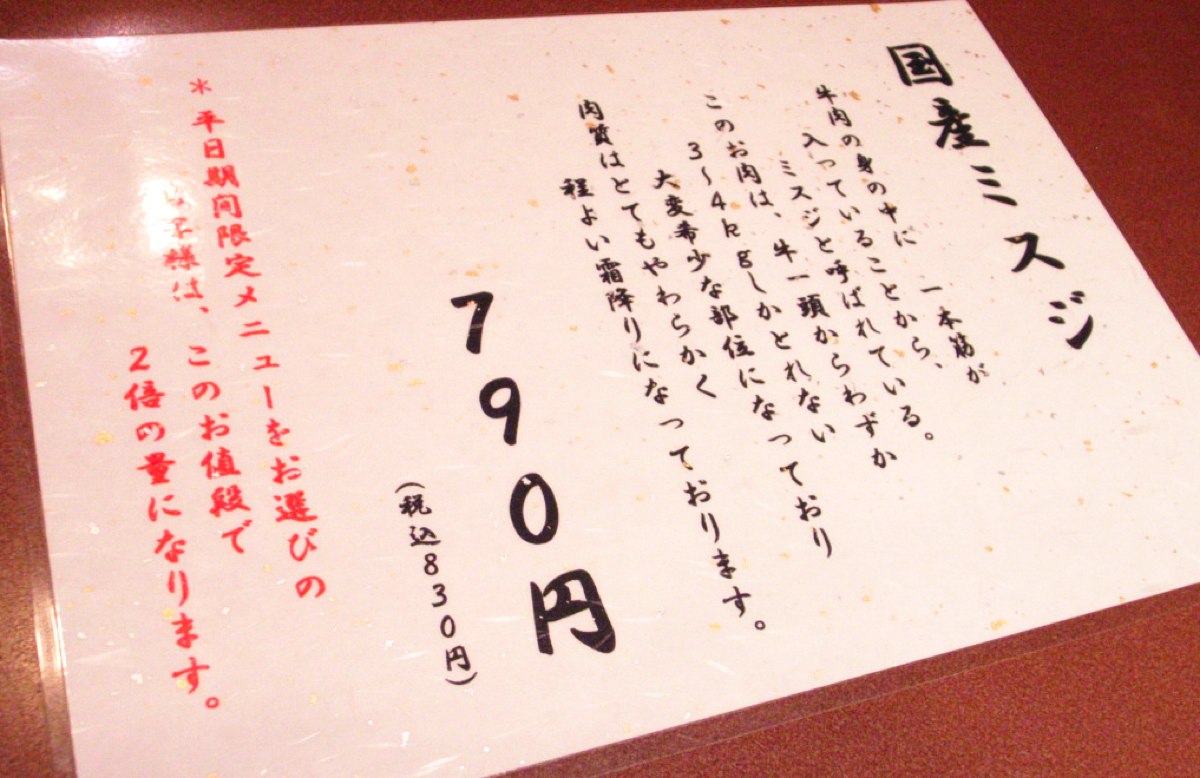 国産ミスジ
牛肉の身の中に　一本筋が
入っていることから、
ミスジと呼ばれている。
このお肉は、牛一頭からわずか
3～4kgしかとれない
大変希少な部位になっており
肉質はとてもやわらかく
程よい霜降りになっております。
790円
（税込830円）
＊平日期間限定メニューをお選びの
お子様は、このお値段で
2倍の量になります。